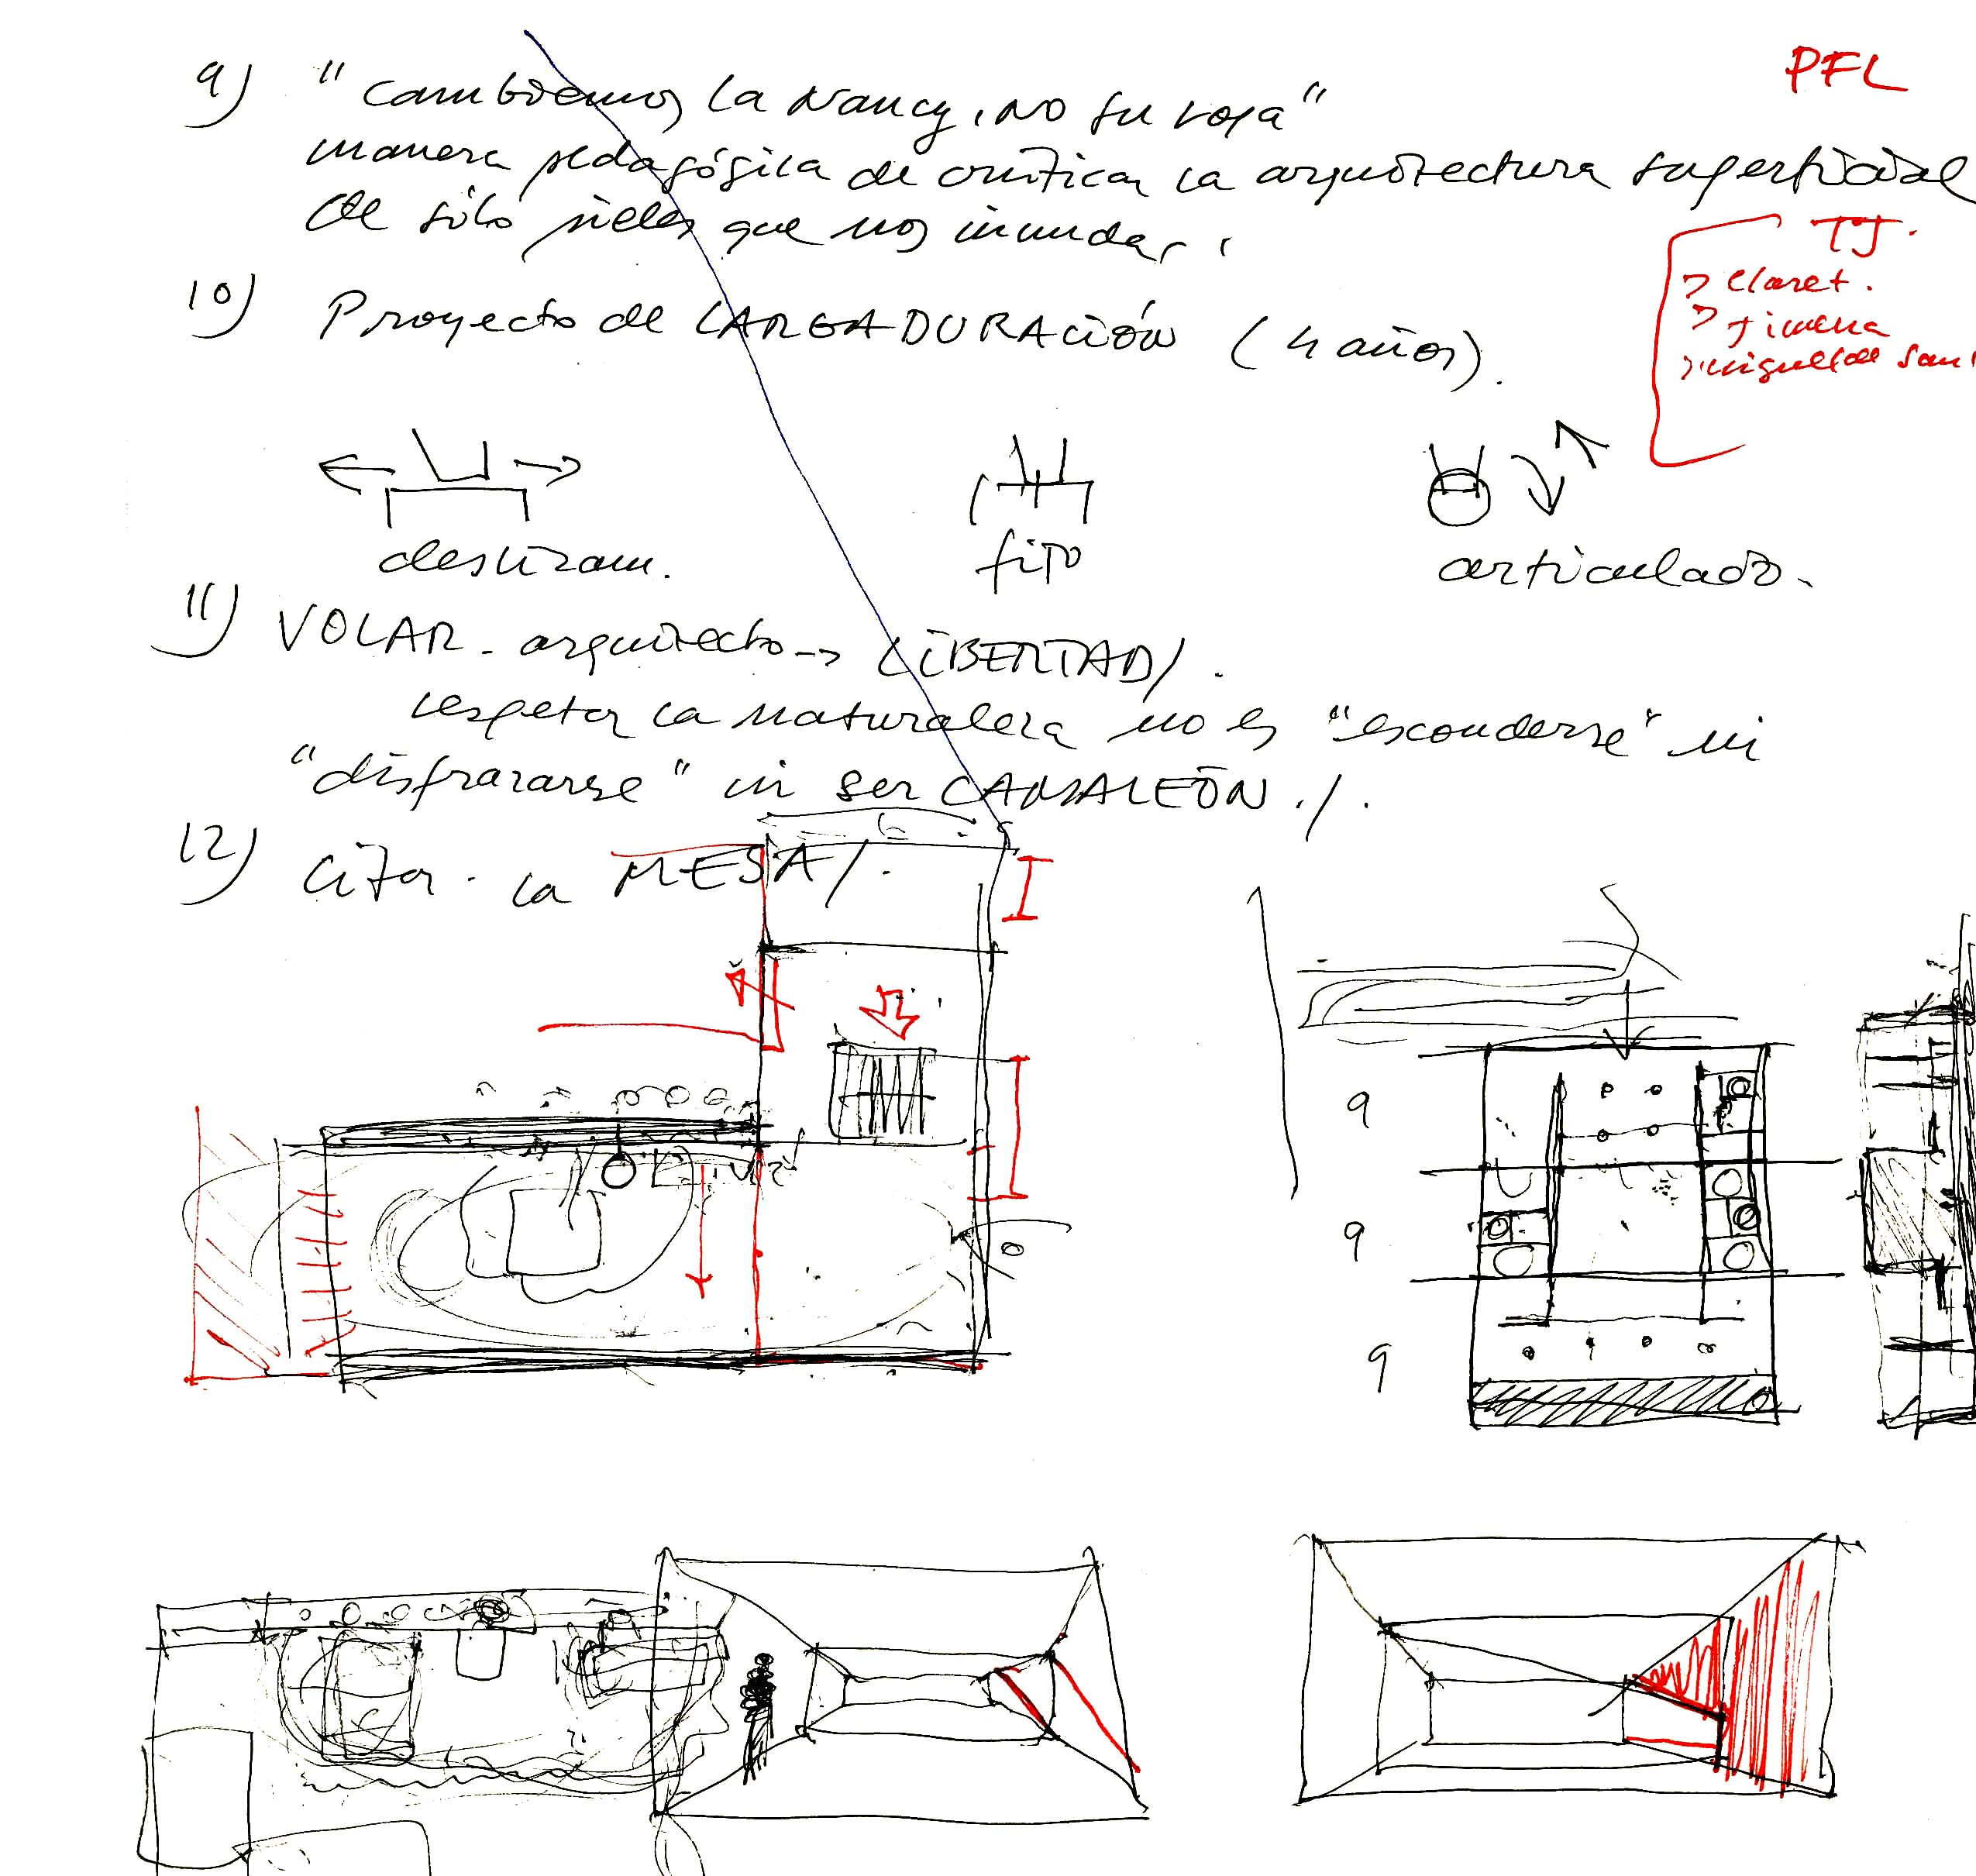 PFL
9) "Cambiemos la Nancy, no su ropa"
manera pedagógica de criticar la arquitectura superficial
de sólo pieles que nos inundan.
TJ.
> Claret.
> Jimena
> miguel de San
10) Proyecto de LARGA DURACIÓN (4 años).
deslizam. fijo articulado.
11) VOLAR - arquitecto -> LIBERTAD/.
respetar la naturaleza no es "esconderse" ni
"disfrazarse" ni ser CAMALEÓN./.
12) Citar la MESA/.
6
9
9
9